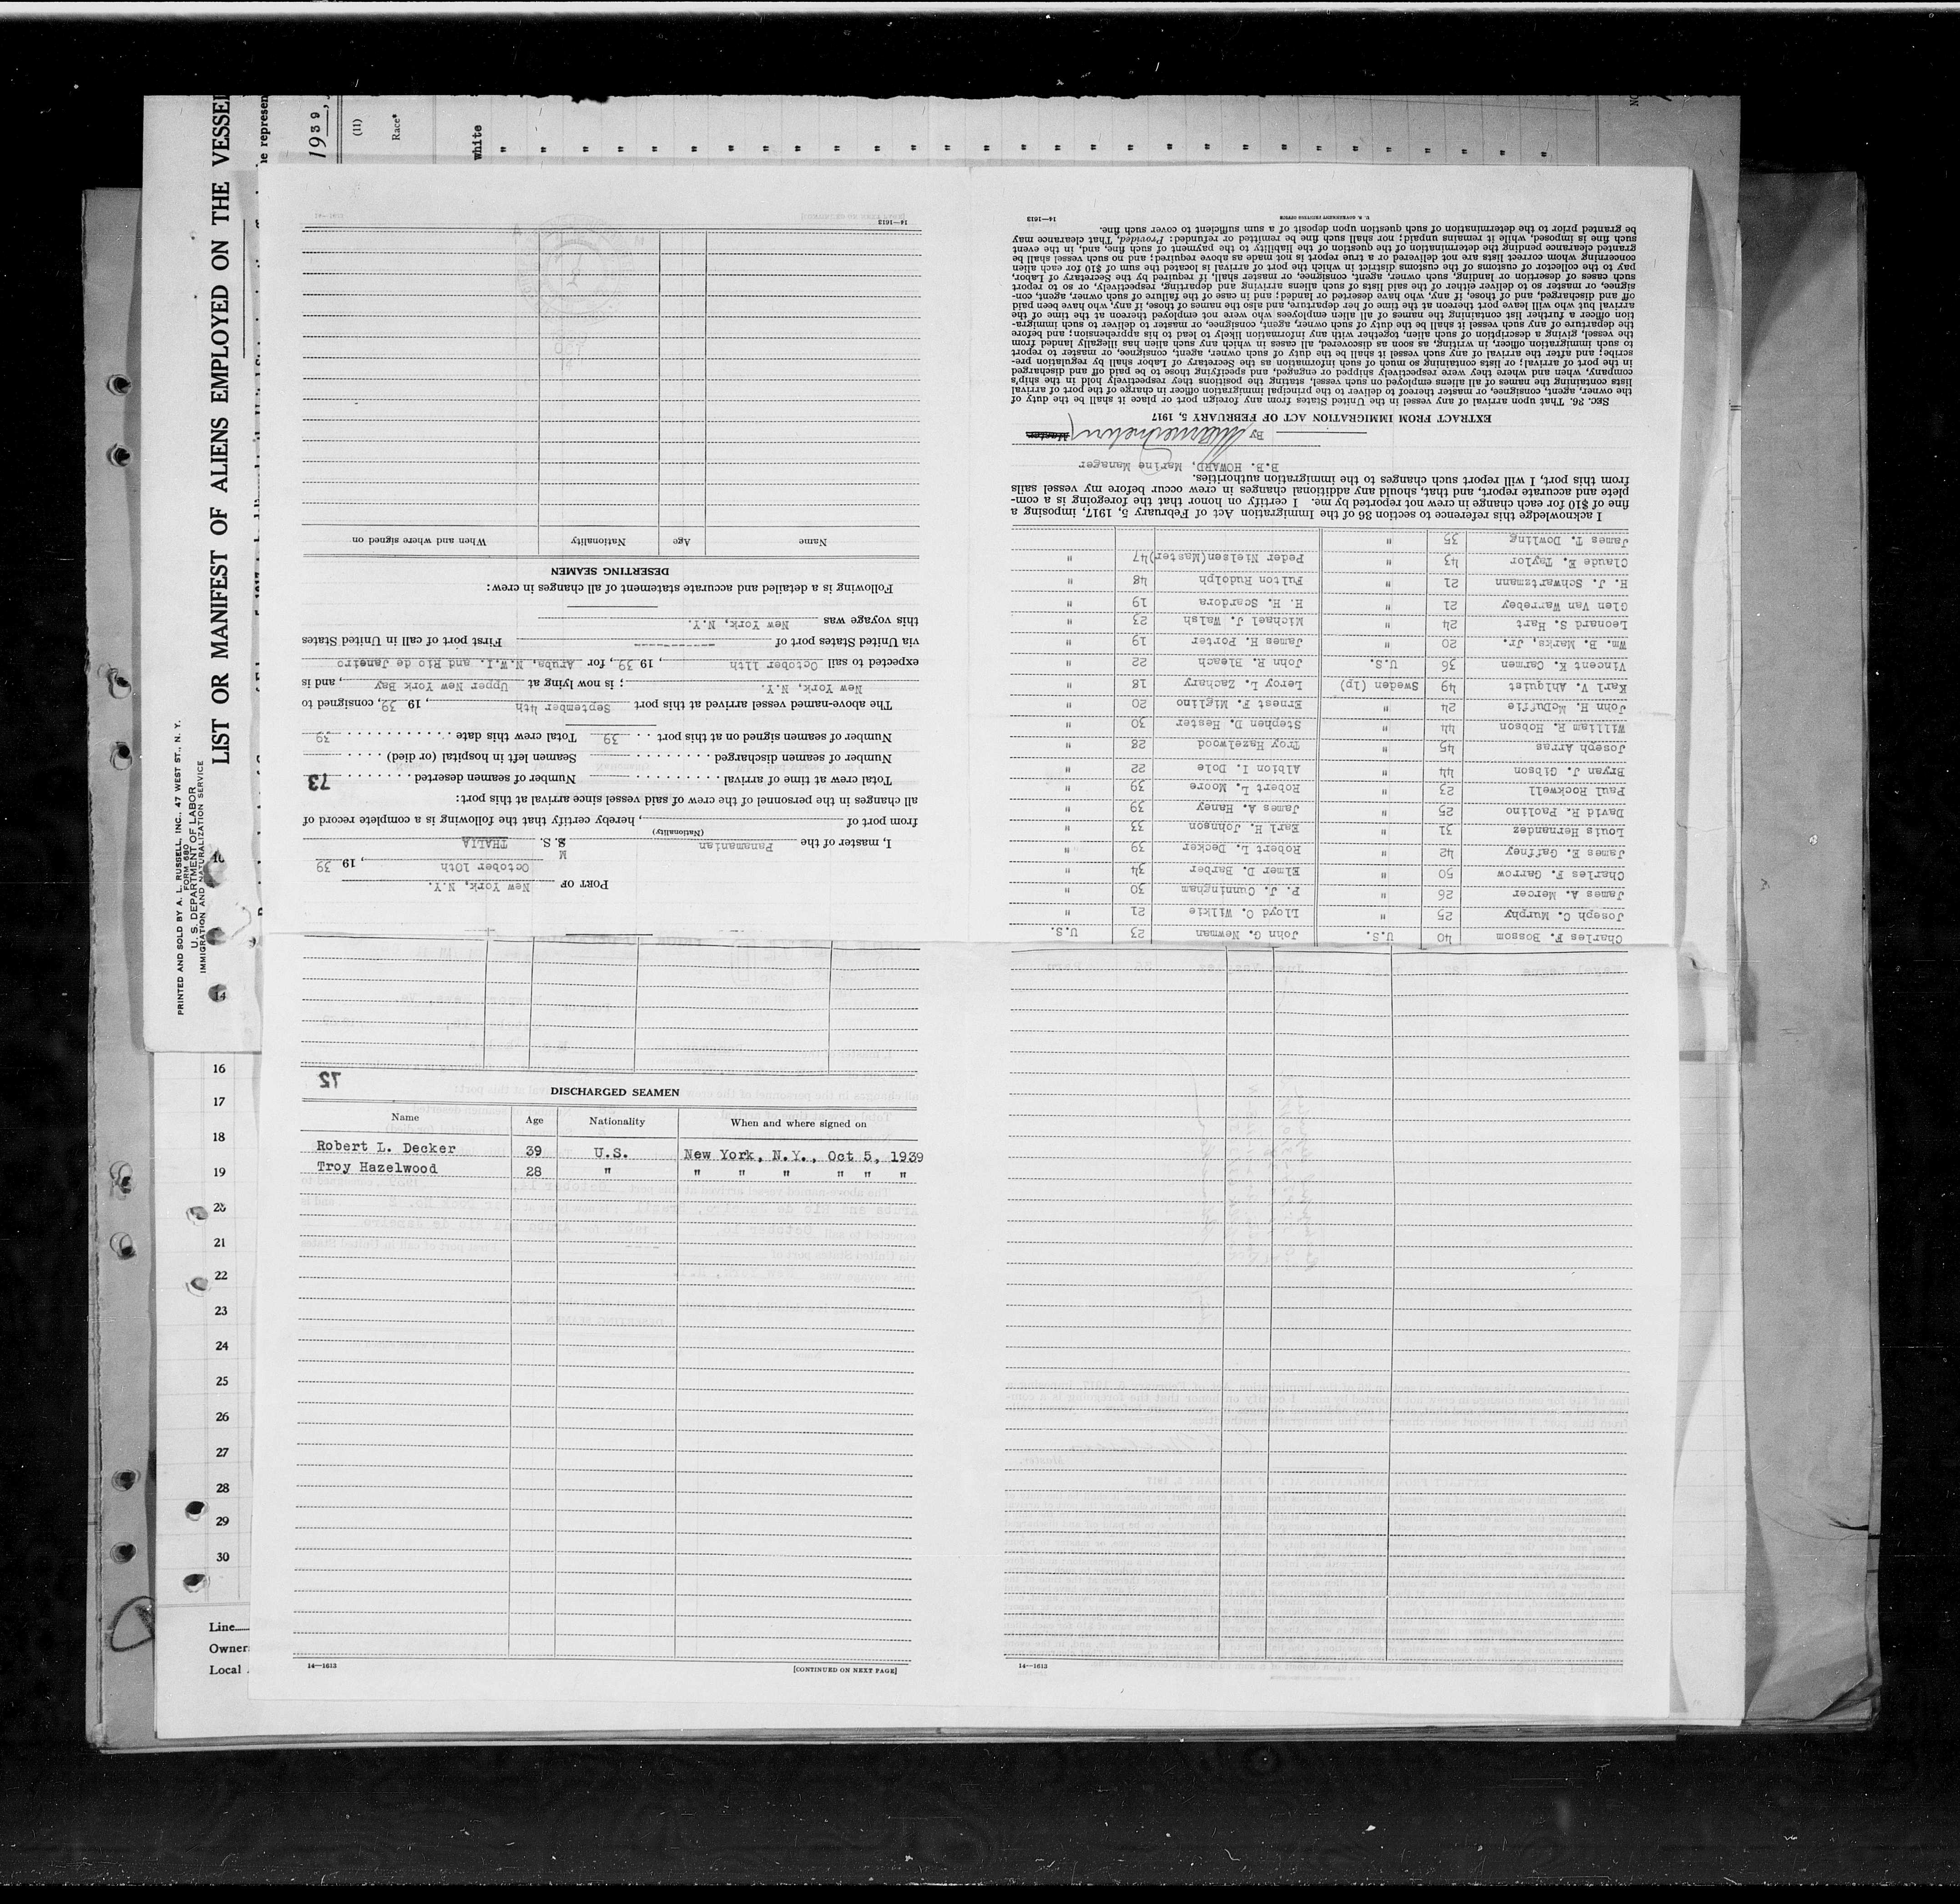 PRINTED AND SOLD BY A. L. RUSSELL, INC., 47 WEST ST., N. Y.
FORM 680
U. S. DEPARTMENT OF LABOR
IMMIGRATION AND NATURALIZATION SERVICE
LIST OR MANIFEST OF ALIENS EMPLOYED ON THE VESSEL
1939,
(11)
Race*
white
PORT OF New York, N.Y.
October 10th, 19 39
I, master of the Panamanian M S. S. THALIA
(Nationality)
from port of , hereby certify that the following is a complete record of
all changes in the personnel of the crew of said vessel since arrival at this port:
Total crew at time of arrival Number of seamen deserted 73
Number of seamen discharged Seamen left in hospital (or died)
Number of seamen signed on at this port 39 Total crew this date 39
The above-named vessel arrived at this port September 4th, 19 39, consigned to
New York, N.Y. ; is now lying at Upper New York Bay, and is
expected to sail October 11th, 19 39, for Aruba, N.W.I. and Rio de Janeiro
via United States port of ---------- First port of call in United States
this voyage was New York, N.Y.
Following is a detailed and accurate statement of all changes in crew:
DESERTING SEAMEN
Name Age Nationality When and where signed on
14—1613
Charles F. Bossom 40 U.S. John G. Newman 23 U.S.
Joseph C. Murphy 25 " Lloyd O. Wilkie 21 "
James A. Mercer 26 " P. J. Cunningham 30 "
Charles F. Garrow 50 " Elmer D. Barber 34 "
James E. Gaffney 42 " Robert L. Decker 39 "
Louis Hernandez 31 " Earl H. Johnson 33 "
David R. Paolino 25 " James A. Haney 39 "
Paul Rockwell 23 " Robert L. Moore 39 "
Bryan J. Gibson 44 " Albion I. Dole 22 "
Joseph Arras 45 " Troy Hazelwood 28 "
William R. Hobson 44 " Stephen D. Hester 30 "
John H. McDuffie 24 " Ernest F. Miglino 20 "
Karl V. Ahlquist 49 Sweden (lp) Leroy L. Zachary 18 "
Vincent K. Carmen 36 U.S. John R. Bleach 22 "
Wm. B. Marks, Jr. 20 " James H. Porter 19 "
Leonard S. Hart 24 " Michael J. Walsh 23 "
Glen Van Warrebey 21 " H. H. Scardora 19 "
H. J. Schwartzmann 21 " Fulton Rudolph 48 "
Claude E. Taylor 43 " Peder Nielsen(Master)47 "
James T. Dowling 35 "
I acknowledge this reference to section 36 of the Immigration Act of February 5, 1917, imposing a
fine of $10 for each change in crew not reported by me. I certify on honor that the foregoing is a com-
plete and accurate report, and that, should any additional changes in crew occur before my vessel sails
from this port, I will report such changes to the immigration authorities.
B.B. HOWARD, Marine Manager
By Master
EXTRACT FROM IMMIGRATION ACT OF FEBRUARY 5, 1917
SEC. 36. That upon arrival of any vessel in the United States from any foreign port or place it shall be the duty of
the owner, agent, consignee, or master thereof to deliver to the principal immigration officer in charge of the port of arrival
lists containing the names of all aliens employed on such vessel, stating the positions they respectively hold in the ship's
company, when and where they were respectively shipped or engaged, and specifying those to be paid off and discharged
in the port of arrival; or lists containing so much of such information as the Secretary of Labor shall by regulation pre-
scribe; and after the arrival of any such vessel it shall be the duty of such owner, agent, consignee, or master to report
to such immigration officer, in writing, as soon as discovered, all cases in which any such alien has illegally landed from
the vessel, giving a description of such alien, together with any information likely to lead to his apprehension; and before
the departure of any such vessel it shall be the duty of such owner, agent, consignee, or master to deliver to such immigra-
tion officer a further list containing the names of all alien employees who were not employed thereon at the time of the
arrival but who will leave port thereon at the time of her departure, and also the names of those, if any, who have been paid
off and discharged, and of those, if any, who have deserted or landed; and in case of the failure of such owner, agent, con-
signee, or master so to deliver either of the said lists of such aliens arriving and departing, respectively, or so to report
such cases of desertion or landing, such owner, agent, consignee, or master shall, if required by the Secretary of Labor,
pay to the collector of customs of the customs district in which the port of arrival is located the sum of $10 for each alien
concerning whom correct lists are not delivered or a true report is not made as above required; and no such vessel shall be
granted clearance pending the determination of the question of the liability to the payment of such fine, and, in the event
such fine is imposed, while it remains unpaid; nor shall such fine be remitted or refunded: Provided, That clearance may
be granted prior to the determination of such question upon deposit of a sum sufficient to cover such fine.
U. S. GOVERNMENT PRINTING OFFICE 14—1613
72
DISCHARGED SEAMEN
Name Age Nationality When and where signed on
Robert L. Decker 39 U.S. New York, N.Y., Oct 5, 1939
Troy Hazelwood 28 " " " " " " "
14—1613 [CONTINUED ON NEXT PAGE]
14—1613
14
16
17
18
19
20
21
22
23
24
25
26
27
28
29
30
Line
Owner
Local